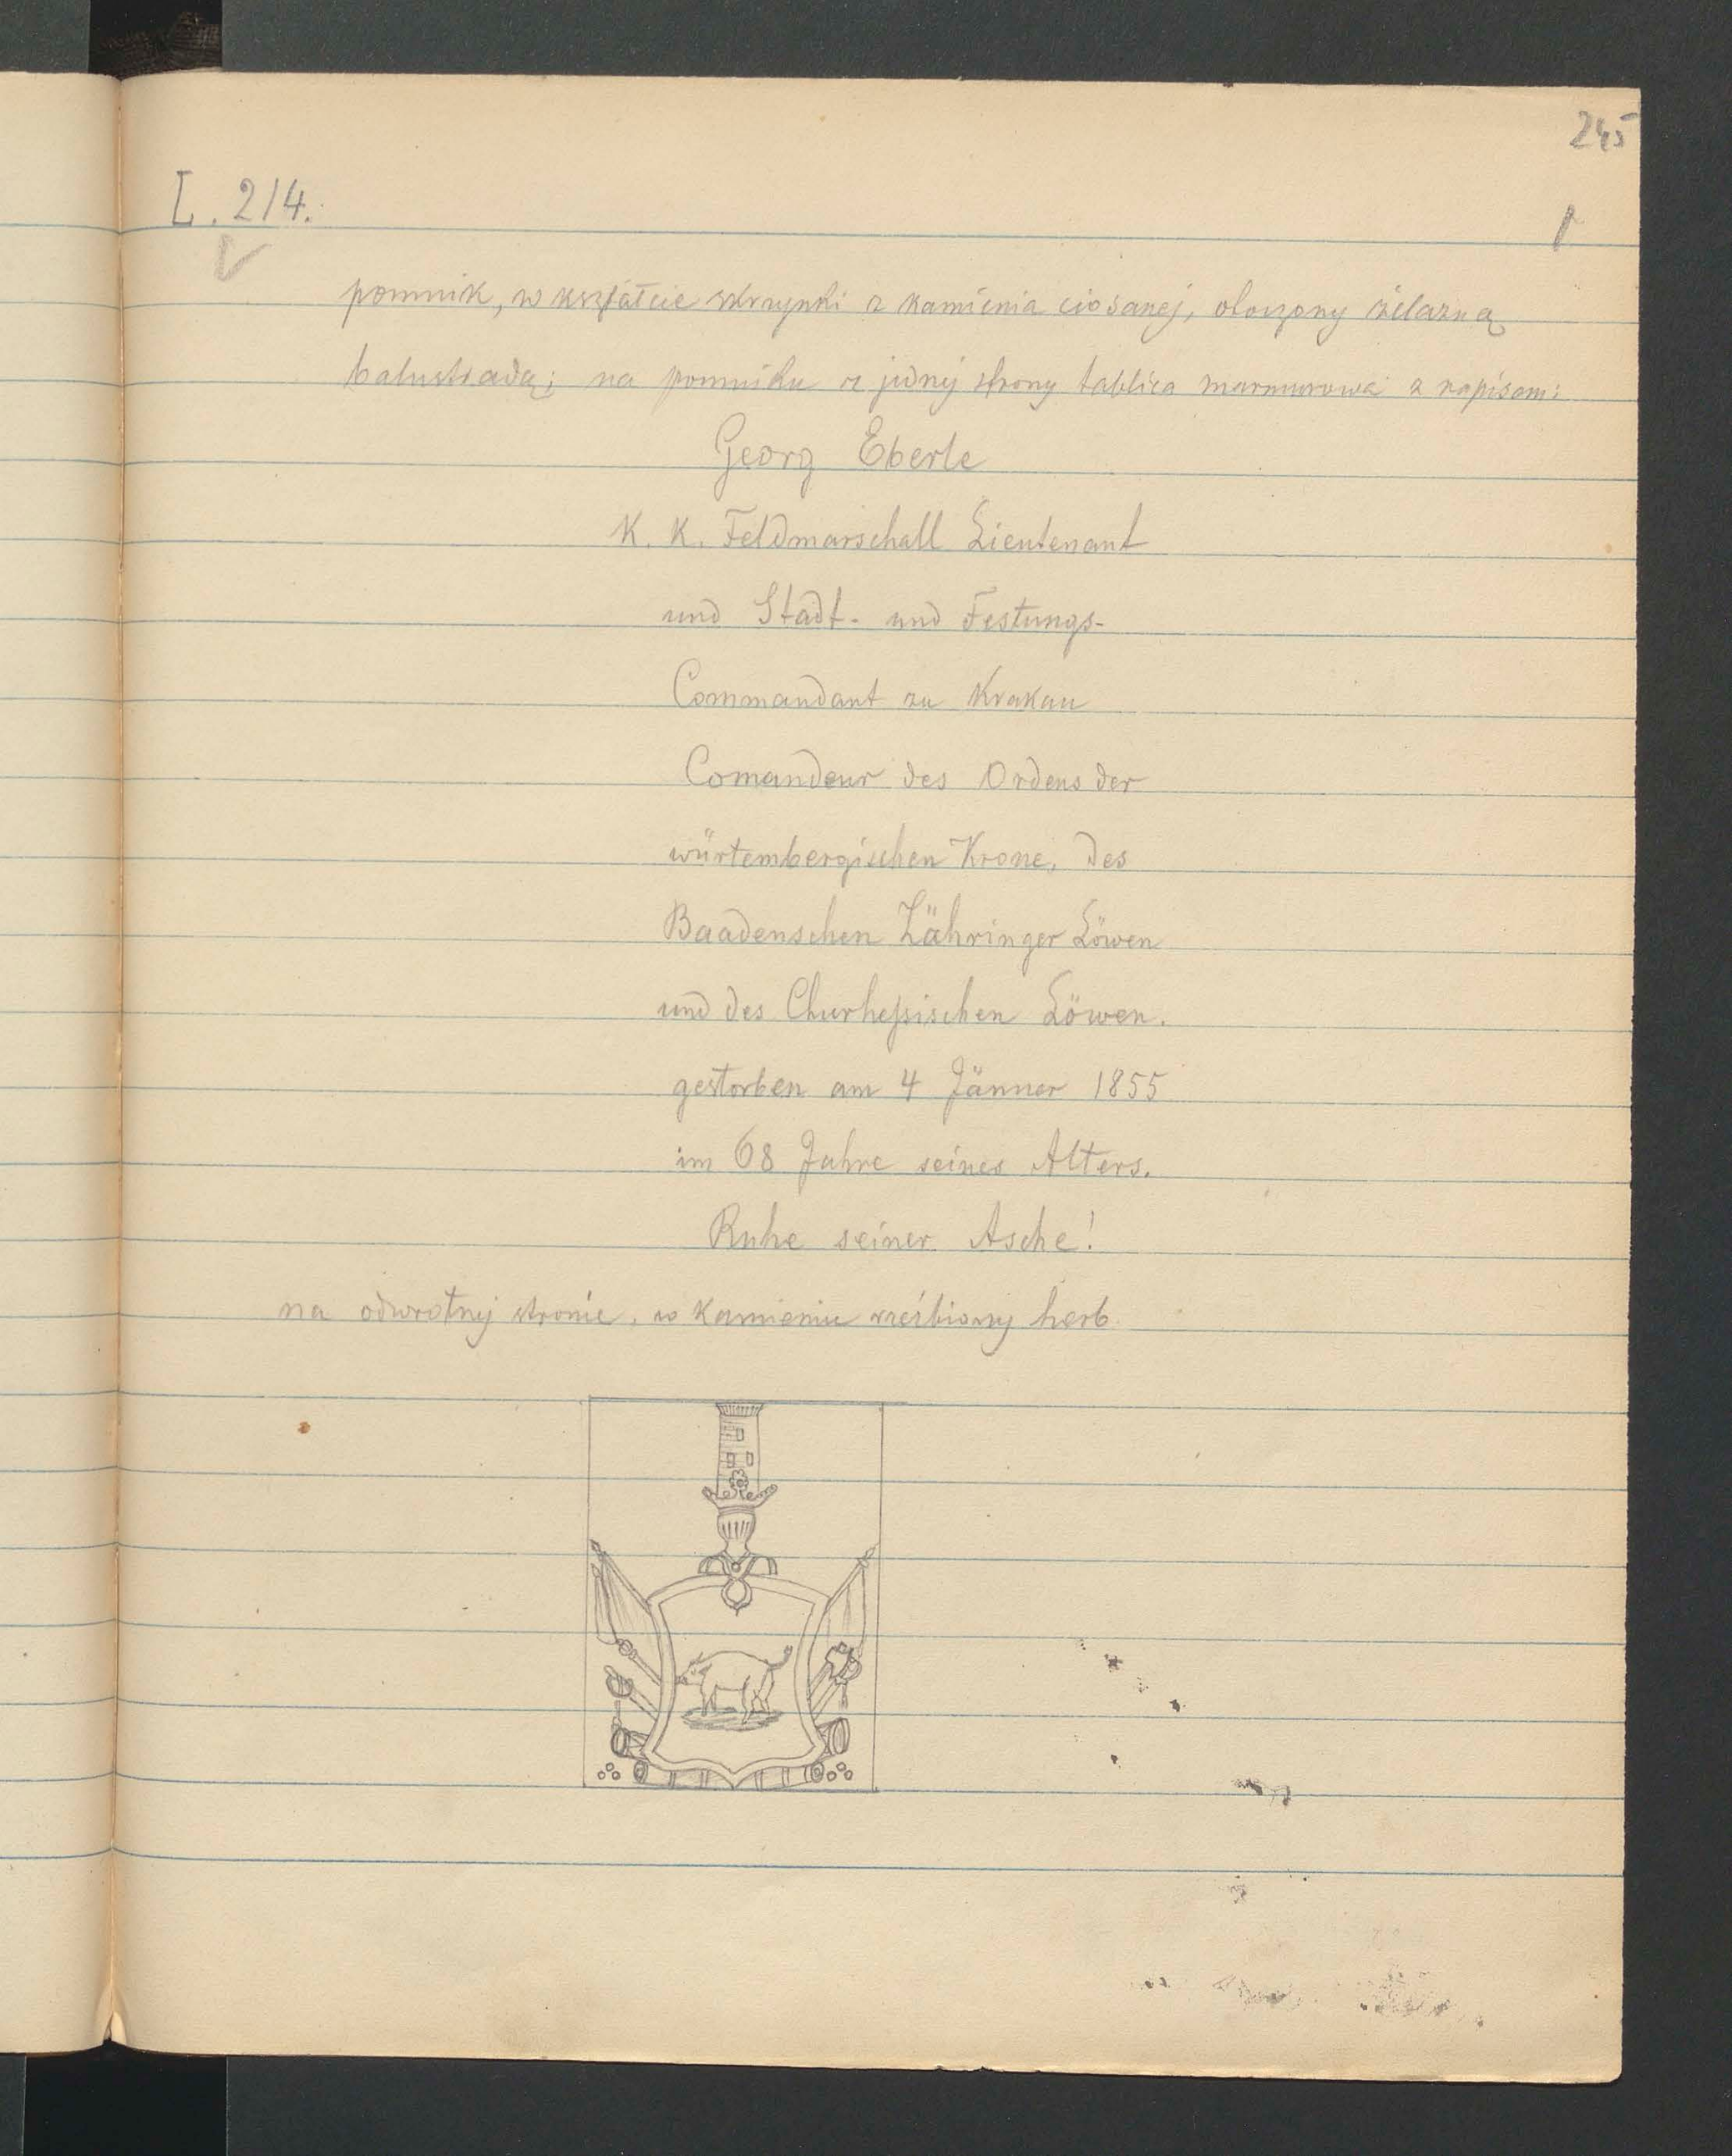 245
L. 214.
1
pomnik, w kształcie skrzynki z kamienia ciosanej, otoczony żelazną
balustradą; na pomniku z jednej strony tablica marmurowa z napisem:
Georg Eberle
K. K. Feldmarschall Lieutenant
und Stadt- und Festungs-
Commandant zu Krakau
Comandeur des Ordens der
würtembergischen Krone, des
Baadenschen Zähringer Löwen
und des Churheßischen Löwen.
gestorben am 4 Jänner 1855
im 68 Jahre seines Alters.
Ruhe seiner Asche!
na odwrotnej stronie, w kamieniu rzeźbiony herb